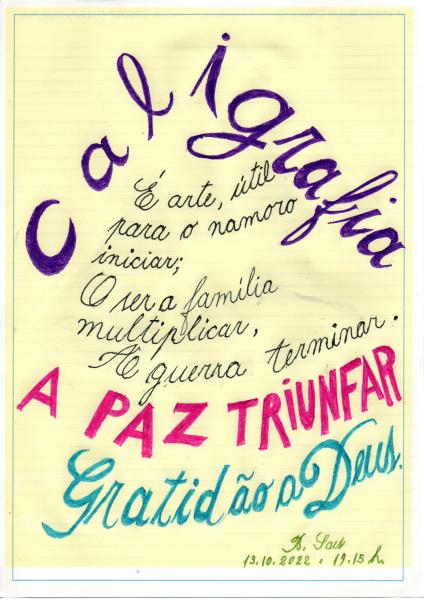 Caligrafia
É arte, útil
para o namoro
iniciar;
O ser a família
multiplicar,
A guerra terminar.
A PAZ TRIUNFAR
Gratidão a Deus.
13.10.2022 . 19.15 h.